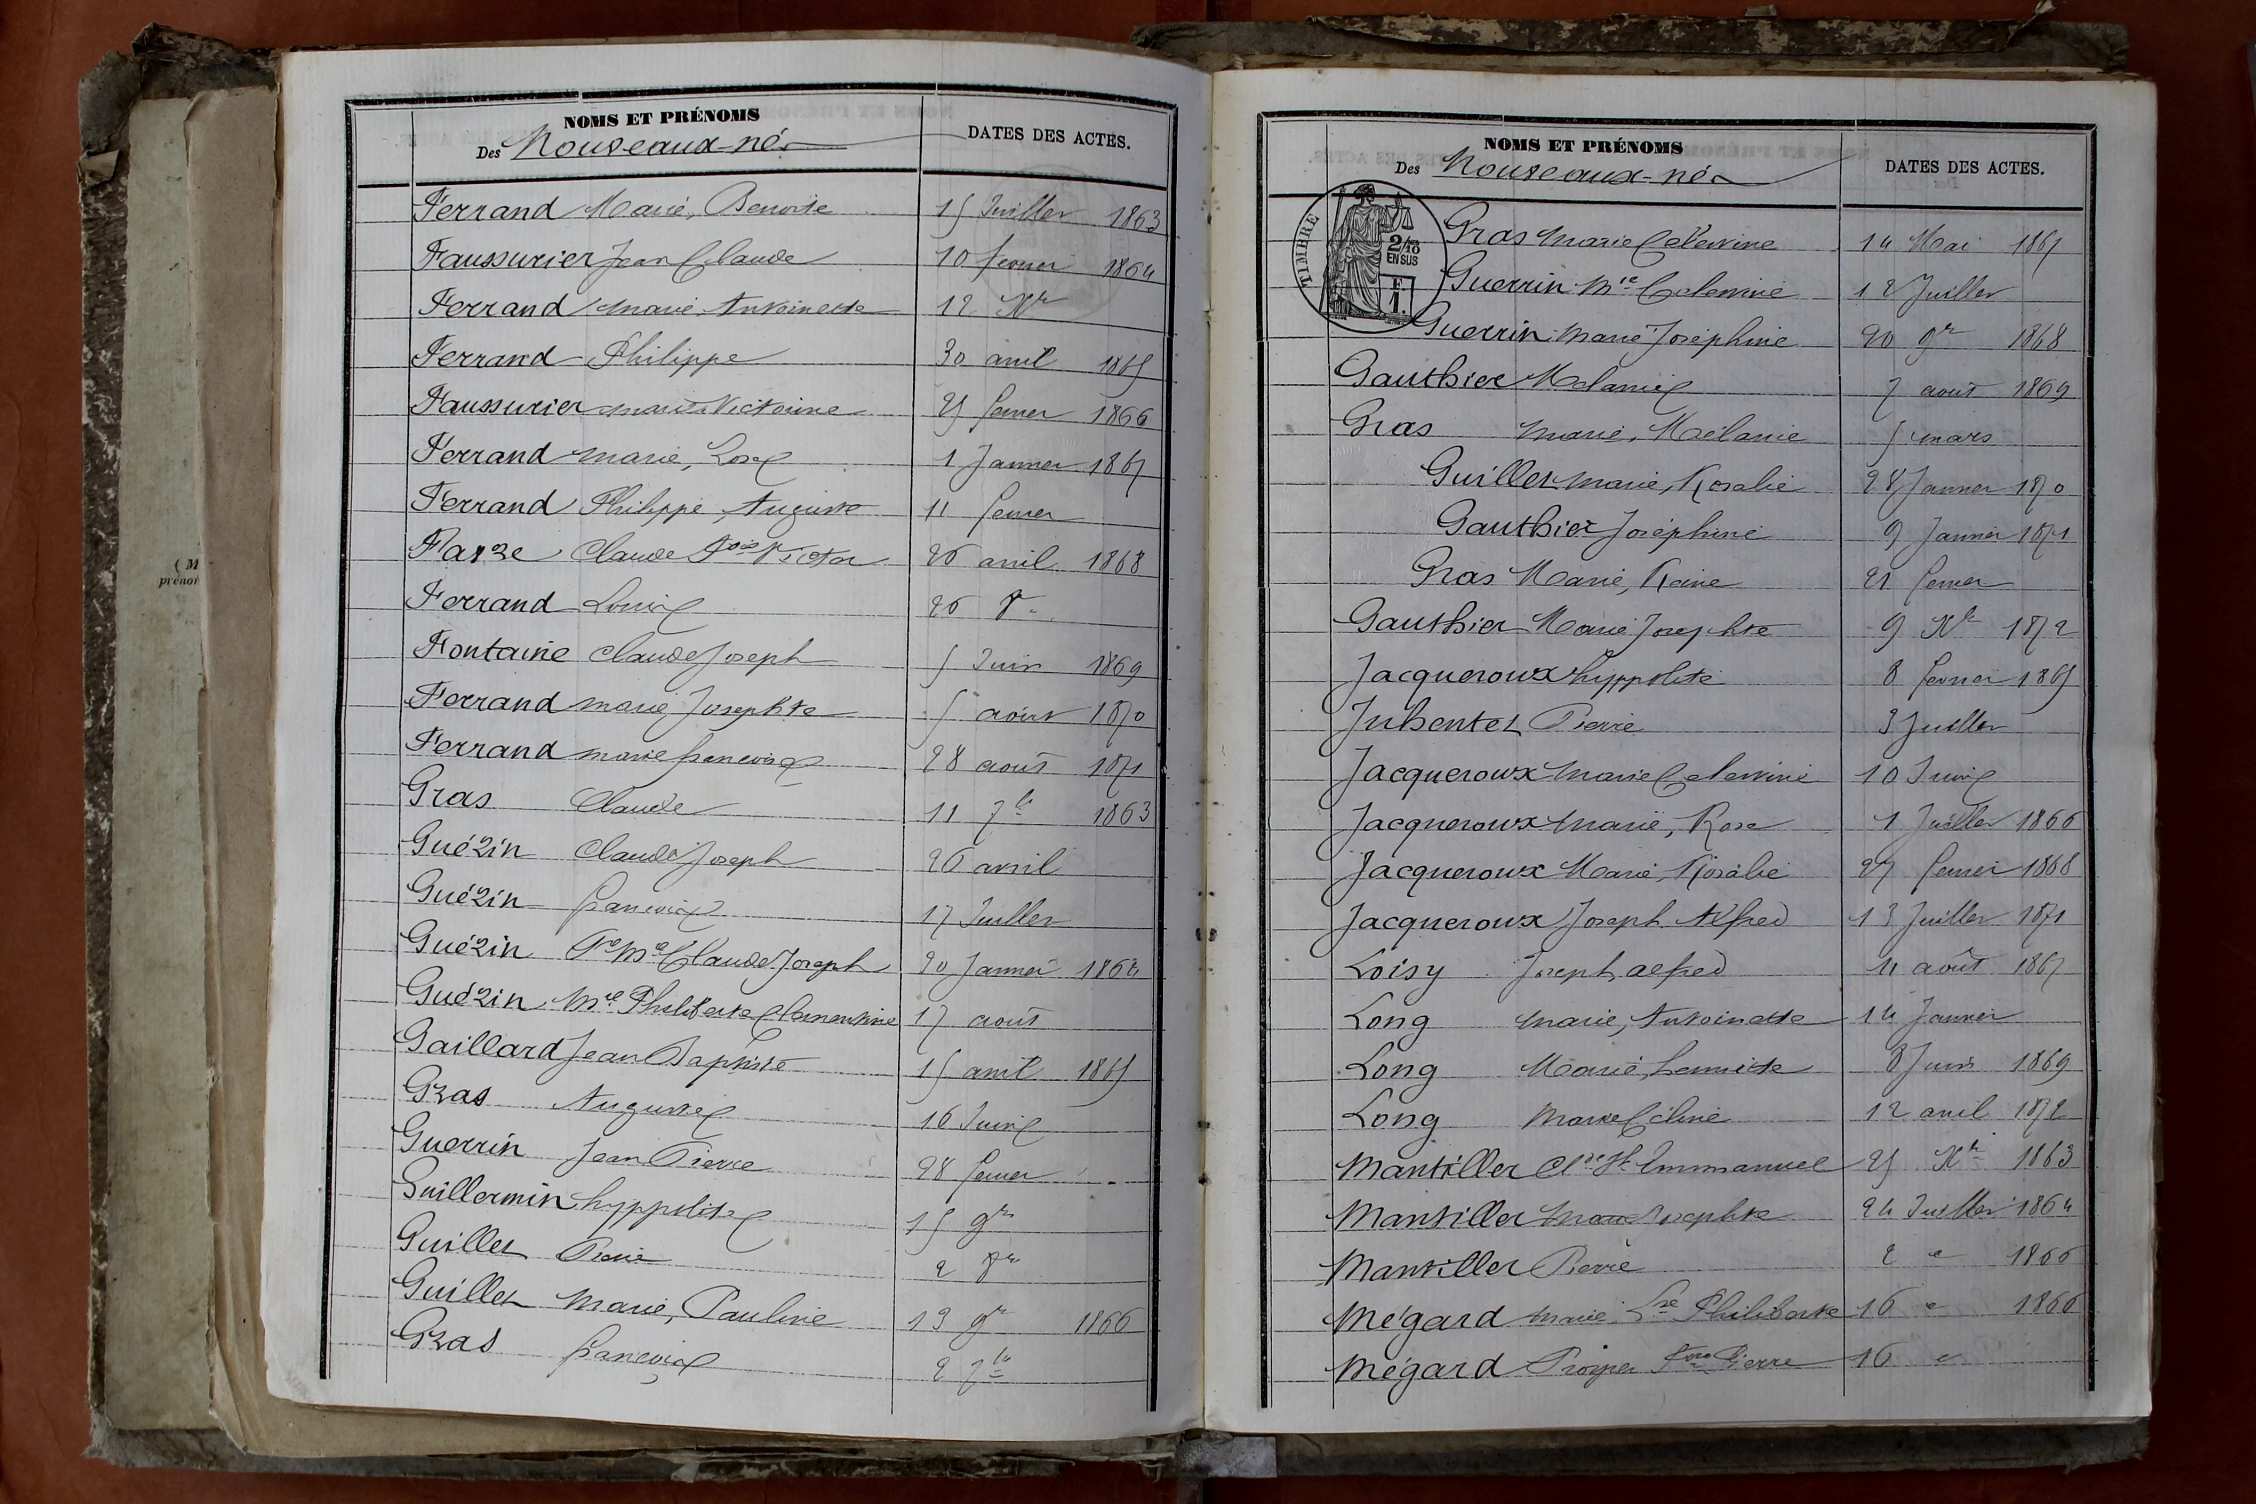 NOMS ET PRÉNOMS
Des Nouveaux-nés
DATES DES ACTES.
Ferrand Marie, Benoite 15 Juillet 1863
Faussurier Jean Claude 10 fevrier 1864
Ferrand marie Antoinette 12 Xbre
Ferrand Philippe 30 avril 1865
Faussurier marie Victorine 25 fevrier 1866
Ferrand marie, Rose 1 Janvier 1867
Ferrand Philippe, Auguste 11 fevrier
Claude Fois Victor 26 avril 1868
Ferrand Louise 26
Fontaine Claude Joseph 5 Juin 1869
Ferrand marie Josephte 5 août 1870
Ferrand marie françoise 28 août 1871
Gras Claude 11 7bre 1863
Guérin Claude Joseph 26 avril
Guérin françoise 17 Juillet
Guérin Claude Joseph 20 Janvier 1864
Guérin Mie Philiberte Clementine 17 août
Gaillard Jean Baptiste 15 avril 1865
Gras Auguste 16 Juin
Guerrin Jean Pierre 28 fevrier
Guillermin hyppolite 15 9bre
Guillet Pierre 2 8bre
Guillet Marie, Pauline 13 9bre 1866
Gras françoise 2 7bre
(M
prénom
NOMS ET PRÉNOMS
Des Nouveaux-nés
DATES DES ACTES.
TIMBRE
2/10
EN SUS
F.
1.
Gras marie Celestine 14 Mai 1867
Guerrin Mie Celestine 12 Juillet
Guerrin Marie Joséphine 20 9bre 1868
Gauthier Melanie 7 août 1869
Gras marie, Mélanie 5 mars
Guillet marie, Rosalie 28 Janvier 1870
Gauthier Joséphine 9 Janvier 1871
Gras Marie, Reine 21 fevrier
Gauthier Marie Josephte 9 Xbre 1872
Jacqueroux hyppolite 8 fevrier 1865
Juhentet Pierre 3 Juillet
Jacqueroux marie Celestine 10 Juin
Jacqueroux marie, Rose 1 Juillet 1866
Jacqueroux Marie Rosalie 27 fevrier 1868
Jacqueroux Joseph Alfred 13 Juillet 1871
Loisy Joseph alfred 11 août 1867
Long marie, Antoinette 14 Janvier
Long Marie 8 Juin 1869
Long Marie Céline 12 avril 1872
Mantillet Emmanuel 25 Xbre 1863
Mantillet Marie Josephte 24 Juillet 1864
Mantillet Pierre 2 " 1866
Mégard marie Philiberte 16 " 1866
Mégard Prosper Pierre 16 "